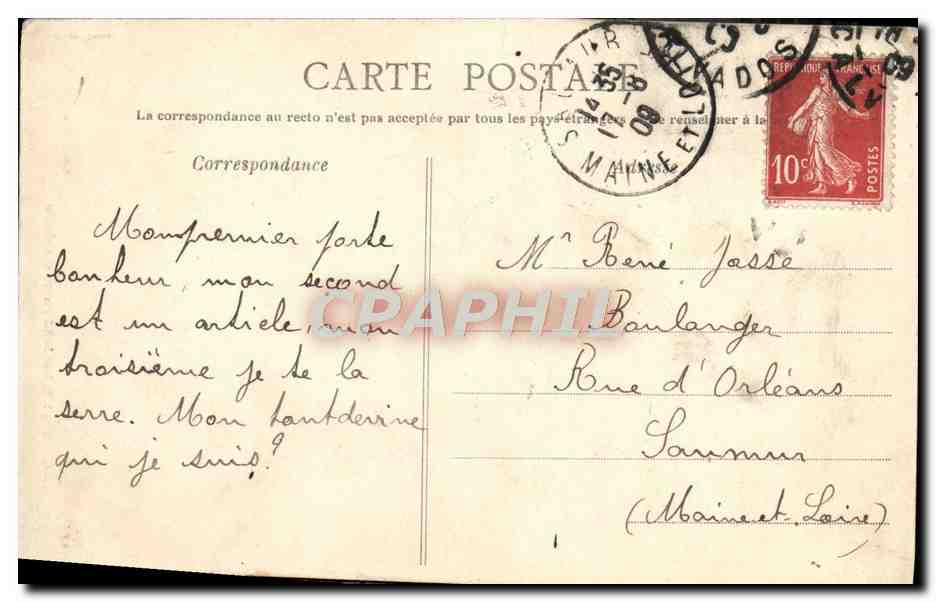 CARTE POSTALE
La correspondance au recto n'est pas acceptée par tous les pays étrangers renseigner à la
Correspondance
Adresse
Mon premier porte
bonheur, mon second
est un article, mon
troisième je te la
serre. Mon tout devine
qui je suis?
Mr René Jossé
Boulanger
Rue d'Orléans
Saumur
(Maine-et-Loire)
SAUMUR
14 35
17 -8
09
MAINE ET LOIRE
ADOS
REPUBLIQUE FRANÇAISE
10c
POSTES
CRAPHIL